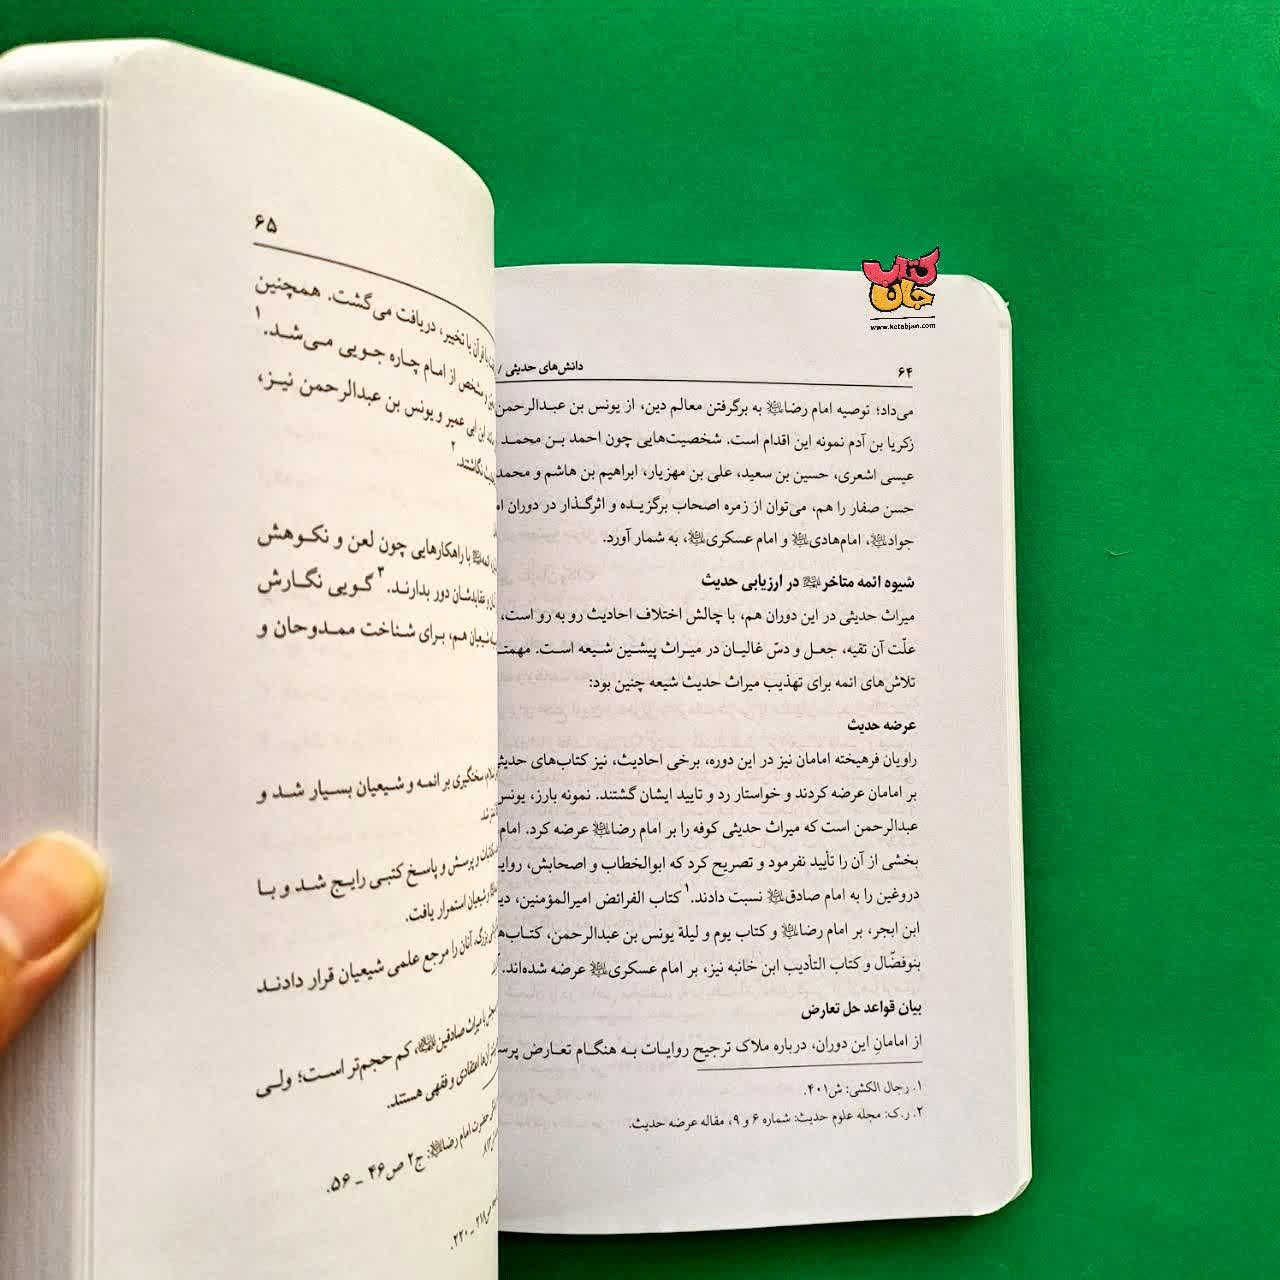 کتاب
جان
www.ketabjan.com
۶۴
دانش‌های حدیثی /
می‌داد؛ توصیه امام رضا به برگرفتن معالم دین، از یونس بن عبدالرحمن
زکریا بن آدم نمونه این اقدام است. شخصیت‌هایی چون احمد بن محمد
عیسی اشعری، حسین بن سعید، علی بن مهزیار، ابراهیم بن هاشم و محمد
حسن صفار را هم، می‌توان از زمره اصحاب برگزیده و اثرگذار در دوران
جواد، امام‌هادی و امام عسکری، به شمار آورد.
شیوه ائمه متاخر در ارزیابی حدیث
میراث حدیثی در این دوران هم، با چالش اختلاف احادیث رو به رو است،
علّت آن تقیه، جعل و دسّ غالیان در میراث پیشین شیعه است.
تلاش‌های ائمه برای تهذیب میراث حدیث شیعه چنین بود:
عرضه حدیث
راویان فرهیخته امامان نیز در این دوره، برخی احادیث، نیز کتاب‌های
بر امامان عرضه کردند و خواستار رد و تایید ایشان گشتند. نمونه بارز، یونس
عبدالرحمن است که میراث حدیثی کوفه را بر امام رضا عرضه کرد. امام
بخشی از آن را تأیید نفرمود و تصریح کرد که ابوالخطاب و اصحابش،
دروغین را به امام صادق نسبت دادند.۱ کتاب الفرائض امیرالمؤمنین،
ابن ابجر، بر امام رضا و کتاب یوم و لیلة یونس بن عبدالرحمن،
بنوفضّال و کتاب التأدیب ابن خانبه نیز، بر امام عسکری عرضه شده‌اند.
بیان قواعد حل تعارض
از امامانِ این دوران، درباره ملاک ترجیح روایات به هنگام تعارض
۱. رجال الکشی: ش۴۰۱.
۲. ر.ک: مجله علوم حدیث: شماره ۶ و ۹، مقاله عرضه حدیث.
۶۵
قرآن یا تخییر، دریافت می‌گشت. همچنین
مشخص از امام چاره جویی می‌شد.۱
ابن ابی عمیر و یونس بن عبدالرحمن نیز،
نگاشتند.۲
با راهکارهایی چون لعن و نکوهش
عقایدشان دور بدارند.۳ گویی نگارش
شیعیان هم، برای شناخت ممدوحان و
سختگیری بر ائمه و شیعیان بسیار شد و
و پرسش و پاسخ کتبی رایج شد و با
شیعیان استمرار یافت.
بزرگ، آنان را مرجع علمی شیعیان قرار دادند
میراث صادقین، کم حجم‌تر است؛ ولی
اعتقادی و فقهی هستند.
حضرت امام رضا: ج۲ ص۴۶ ـ ۵۶.
ص۲۱۸ ـ ۲۲۰.